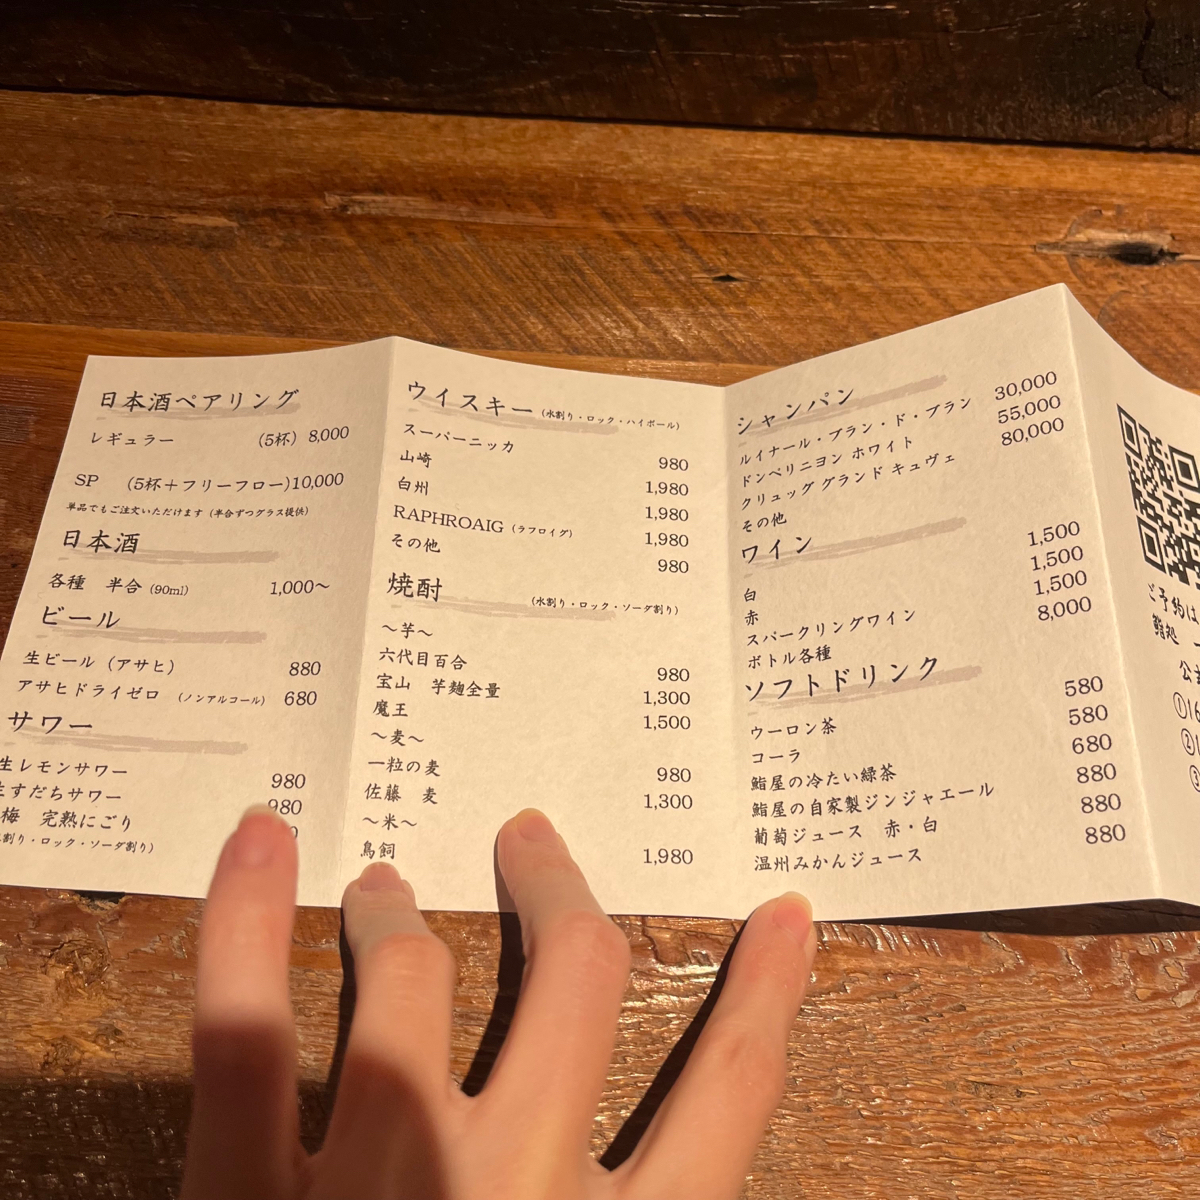 日本酒ペアリング
レギュラー (5杯) 8,000
SP (5杯＋フリーフロー)10,000
単品でもご注文いただけます (半合ずつグラス提供)
日本酒
各種 半合 (90ml) 1,000〜
ビール
生ビール (アサヒ) 880
アサヒドライゼロ (ノンアルコール) 680
サワー
生レモンサワー 980
生すだちサワー 980
梅 完熟にごり
割り・ロック・ソーダ割り)
ウイスキー (水割り・ロック・ハイボール)
スーパーニッカ 980
山崎 1,980
白州 1,980
RAPHROAIG (ラフロイグ) 1,980
その他 980
焼酎 (水割り・ロック・ソーダ割り)
〜芋〜
六代目百合 980
宝山 芋麹全量 1,300
魔王 1,500
〜麦〜
一粒の麦 980
佐藤 麦 1,300
〜米〜
鳥飼 1,980
シャンパン
ルイナール・ブラン・ド・ブラン 30,000
ドンペリニヨン ホワイト 55,000
クリュッグ グランド キュヴェ 80,000
その他
ワイン
白 1,500
赤 1,500
スパークリングワイン 1,500
ボトル各種 8,000
ソフトドリンク
ウーロン茶 580
コーラ 580
鮨屋の冷たい緑茶 680
鮨屋の自家製ジンジャエール 880
葡萄ジュース 赤・白 880
温州みかんジュース 880
ご予約は
鮨処
①16
②1
③